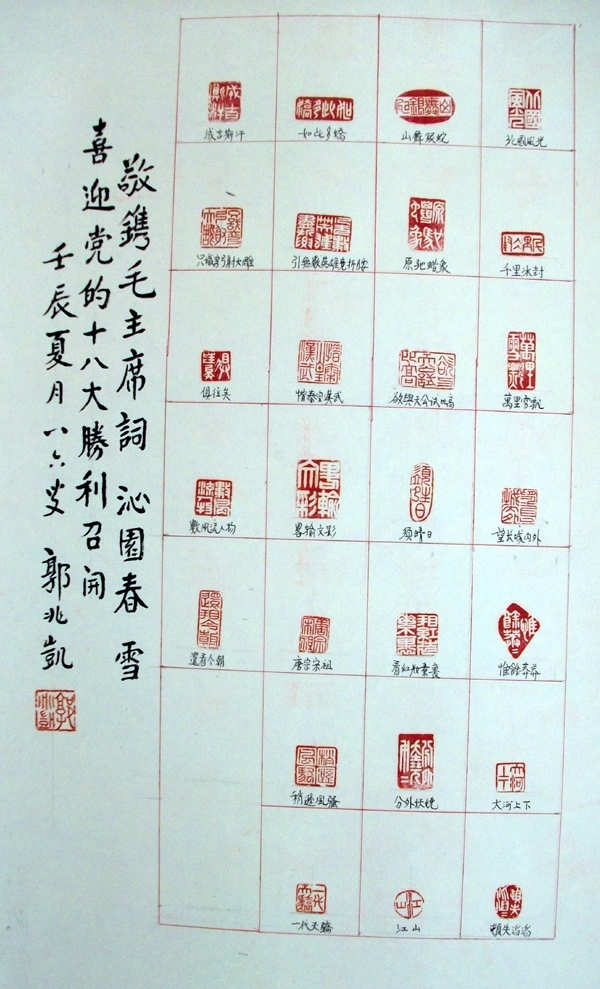 北國風光
千里冰封
萬里雪飄
望长城内外
惟餘莽莽
大河上下
頓失滔滔
山舞银蛇
原驰蜡象
欲與天公试比高
须晴日
看红妝素裹
分外妖娆
江山
如此多嬌
引無數英雄竞折腰
惜秦皇漢武
畧输文彩
唐宗宋祖
稍遜風骚
一代天驕
成吉斯汗
只識弯弓射大雕
俱往矣
數風流人物
還看今朝
敬鐫毛主席詞 沁園春 雪
喜迎党的十八大勝利召开
壬辰夏月八六叟 郭兆凱